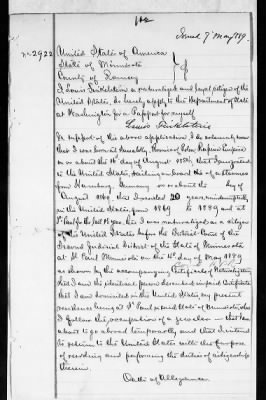 Issued 7 May /89.
No 2922
United States of America
State of Minnesota
County of Ramsey
I Louis Finkelstein a naturalized and loyal citizen of the
United States, do hereby apply to the Department of State
at Washington for a Passport for myself
Louis Finkelstein
In support of the above application, I do solemnly swear
that I was born at Province of Russian Empire
on or about the 16th day of August 1852, that I emigrated
to the United States, sailing on board the of a steamer
from Hamburg, Germany on or about the day of
August 1869, that I resided 20 years, uninterruptedly
in the United States, from 1869 to 1889 and at
St Paul for the last 15 years, that I was naturalized as a citizen
of the United States before the District Court of the
Second Judicial District of the State of Minnesota
at St Paul Minnesota on the day of May 1879
as shown by the accompanying Certificate of Naturalization
that I am the identical person described in said Certificate
that I am domiciled in the United States, my present
residence being at St Paul in said State of Minnesota, that
I follow the occupation of a jeweler that I am
about to go abroad temporarily and that I intend
to return to the United States with the purpose
of residing and performing the duties of citizenship
therein.
Oath of Allegiance.